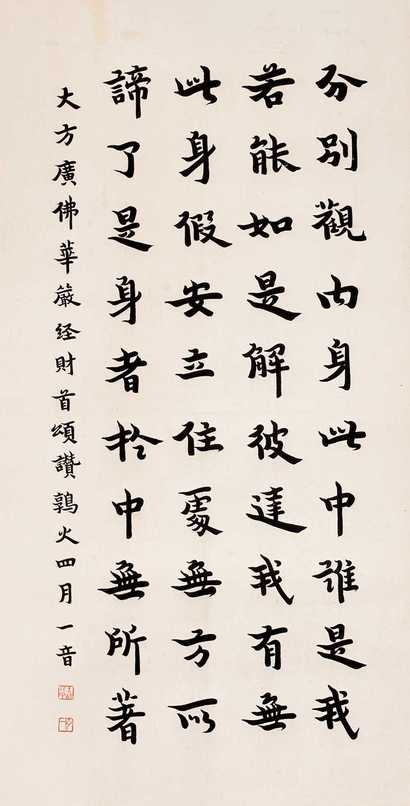 分別觀內身此中誰是我
若能如是解彼達我有無
此身假安立住處無方所
諦了是身者於中無所著
大方廣佛華嚴经財首頌讚鶉火四月一音